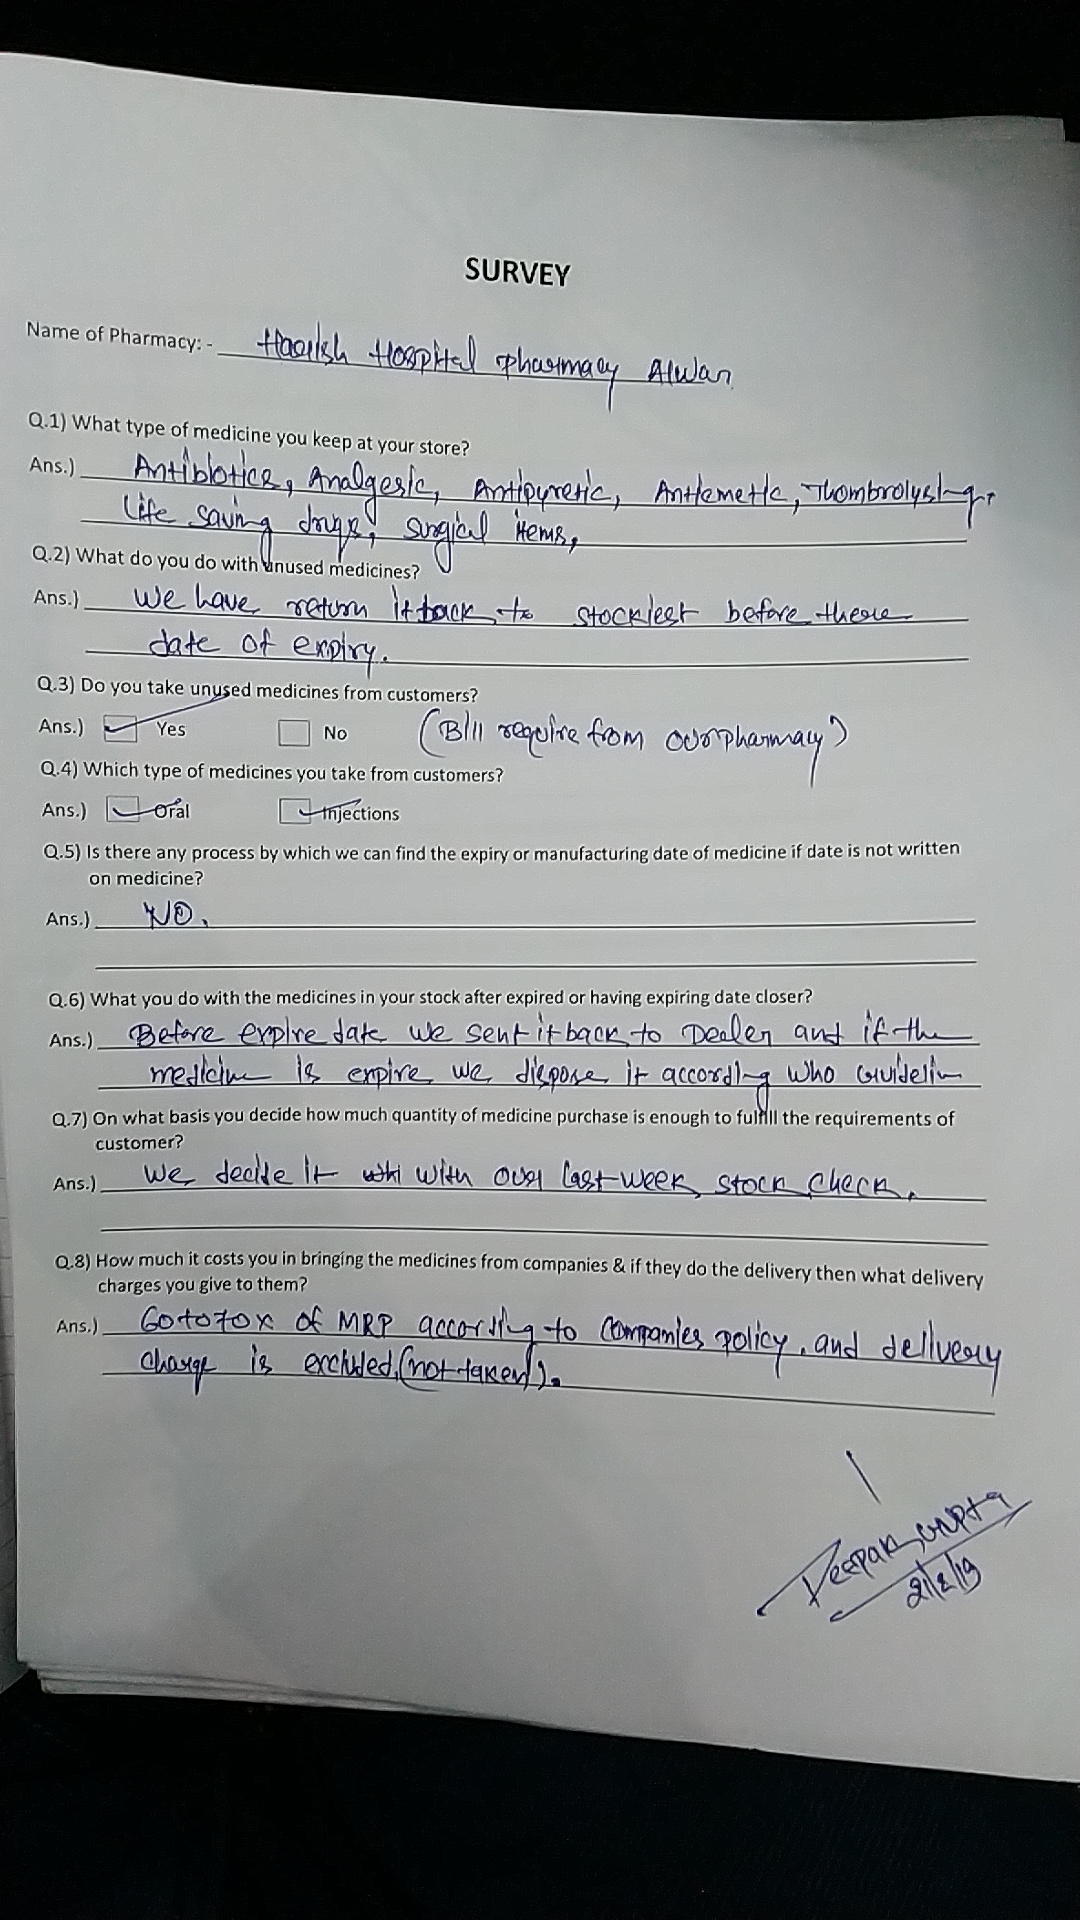 SURVEY
Name of Pharmacy: - Haarish Hospital pharmacy Alwar
Q.1) What type of medicine you keep at your store?
Ans.) Antibiotics, Analgesic, Antipyretic, Antiemetic, Thombrolysing,
life saving drugs, surgical items,
Q.2) What do you do with unused medicines?
Ans.) We have return it back to stockiest before there
date of expiry.
Q.3) Do you take unused medicines from customers?
Ans.) Yes No (Bill require from our pharmacy)
Q.4) Which type of medicines you take from customers?
Ans.) Oral Injections
Q.5) Is there any process by which we can find the expiry or manufacturing date of medicine if date is not written
on medicine?
Ans.) NO.
Q.6) What you do with the medicines in your stock after expired or having expiring date closer?
Ans.) Before expire date we sent it back to Dealer and if the
medicine is expire we dispose it according WHO Guidelin
Q.7) On what basis you decide how much quantity of medicine purchase is enough to fulfill the requirements of
customer?
Ans.) We decide it with our last week stock check.
Q.8) How much it costs you in bringing the medicines from companies & if they do the delivery then what delivery
charges you give to them?
Ans.) of MRP according to Companies policy. and delivery
charge is excluded (not taken).
Deepak Gupta